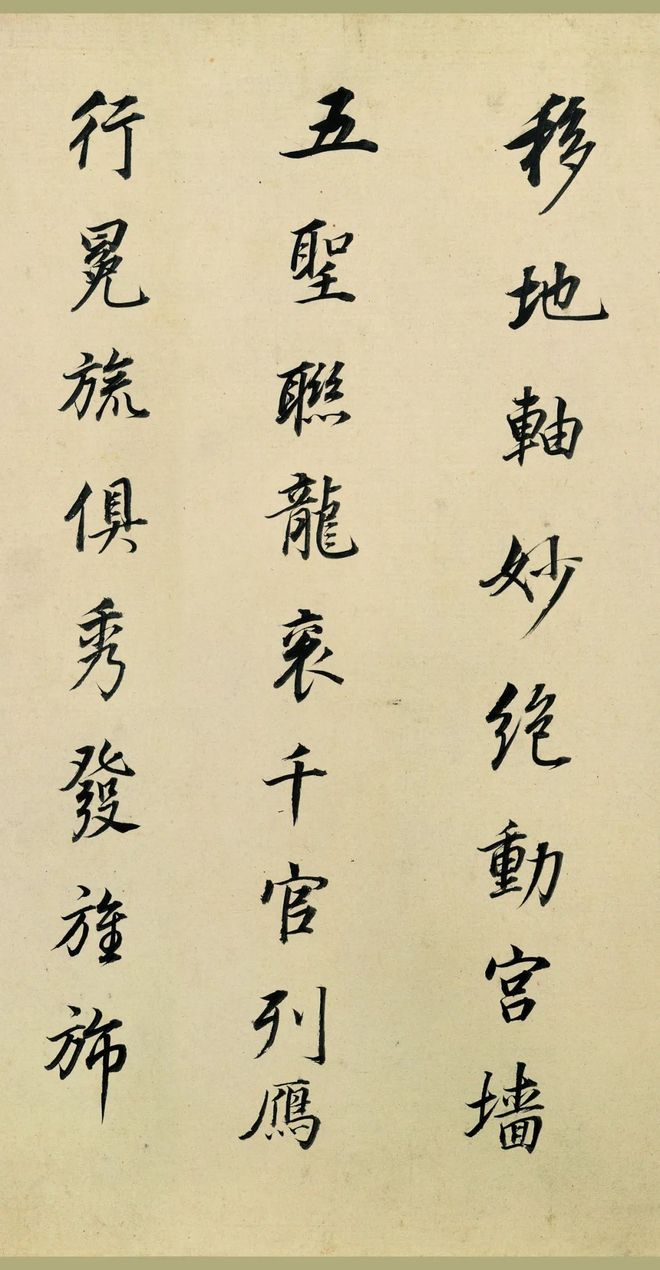 移地軸妙絶動宮墻
五聖聯龍袞千官列鴈
行冕旒俱秀發旌旆